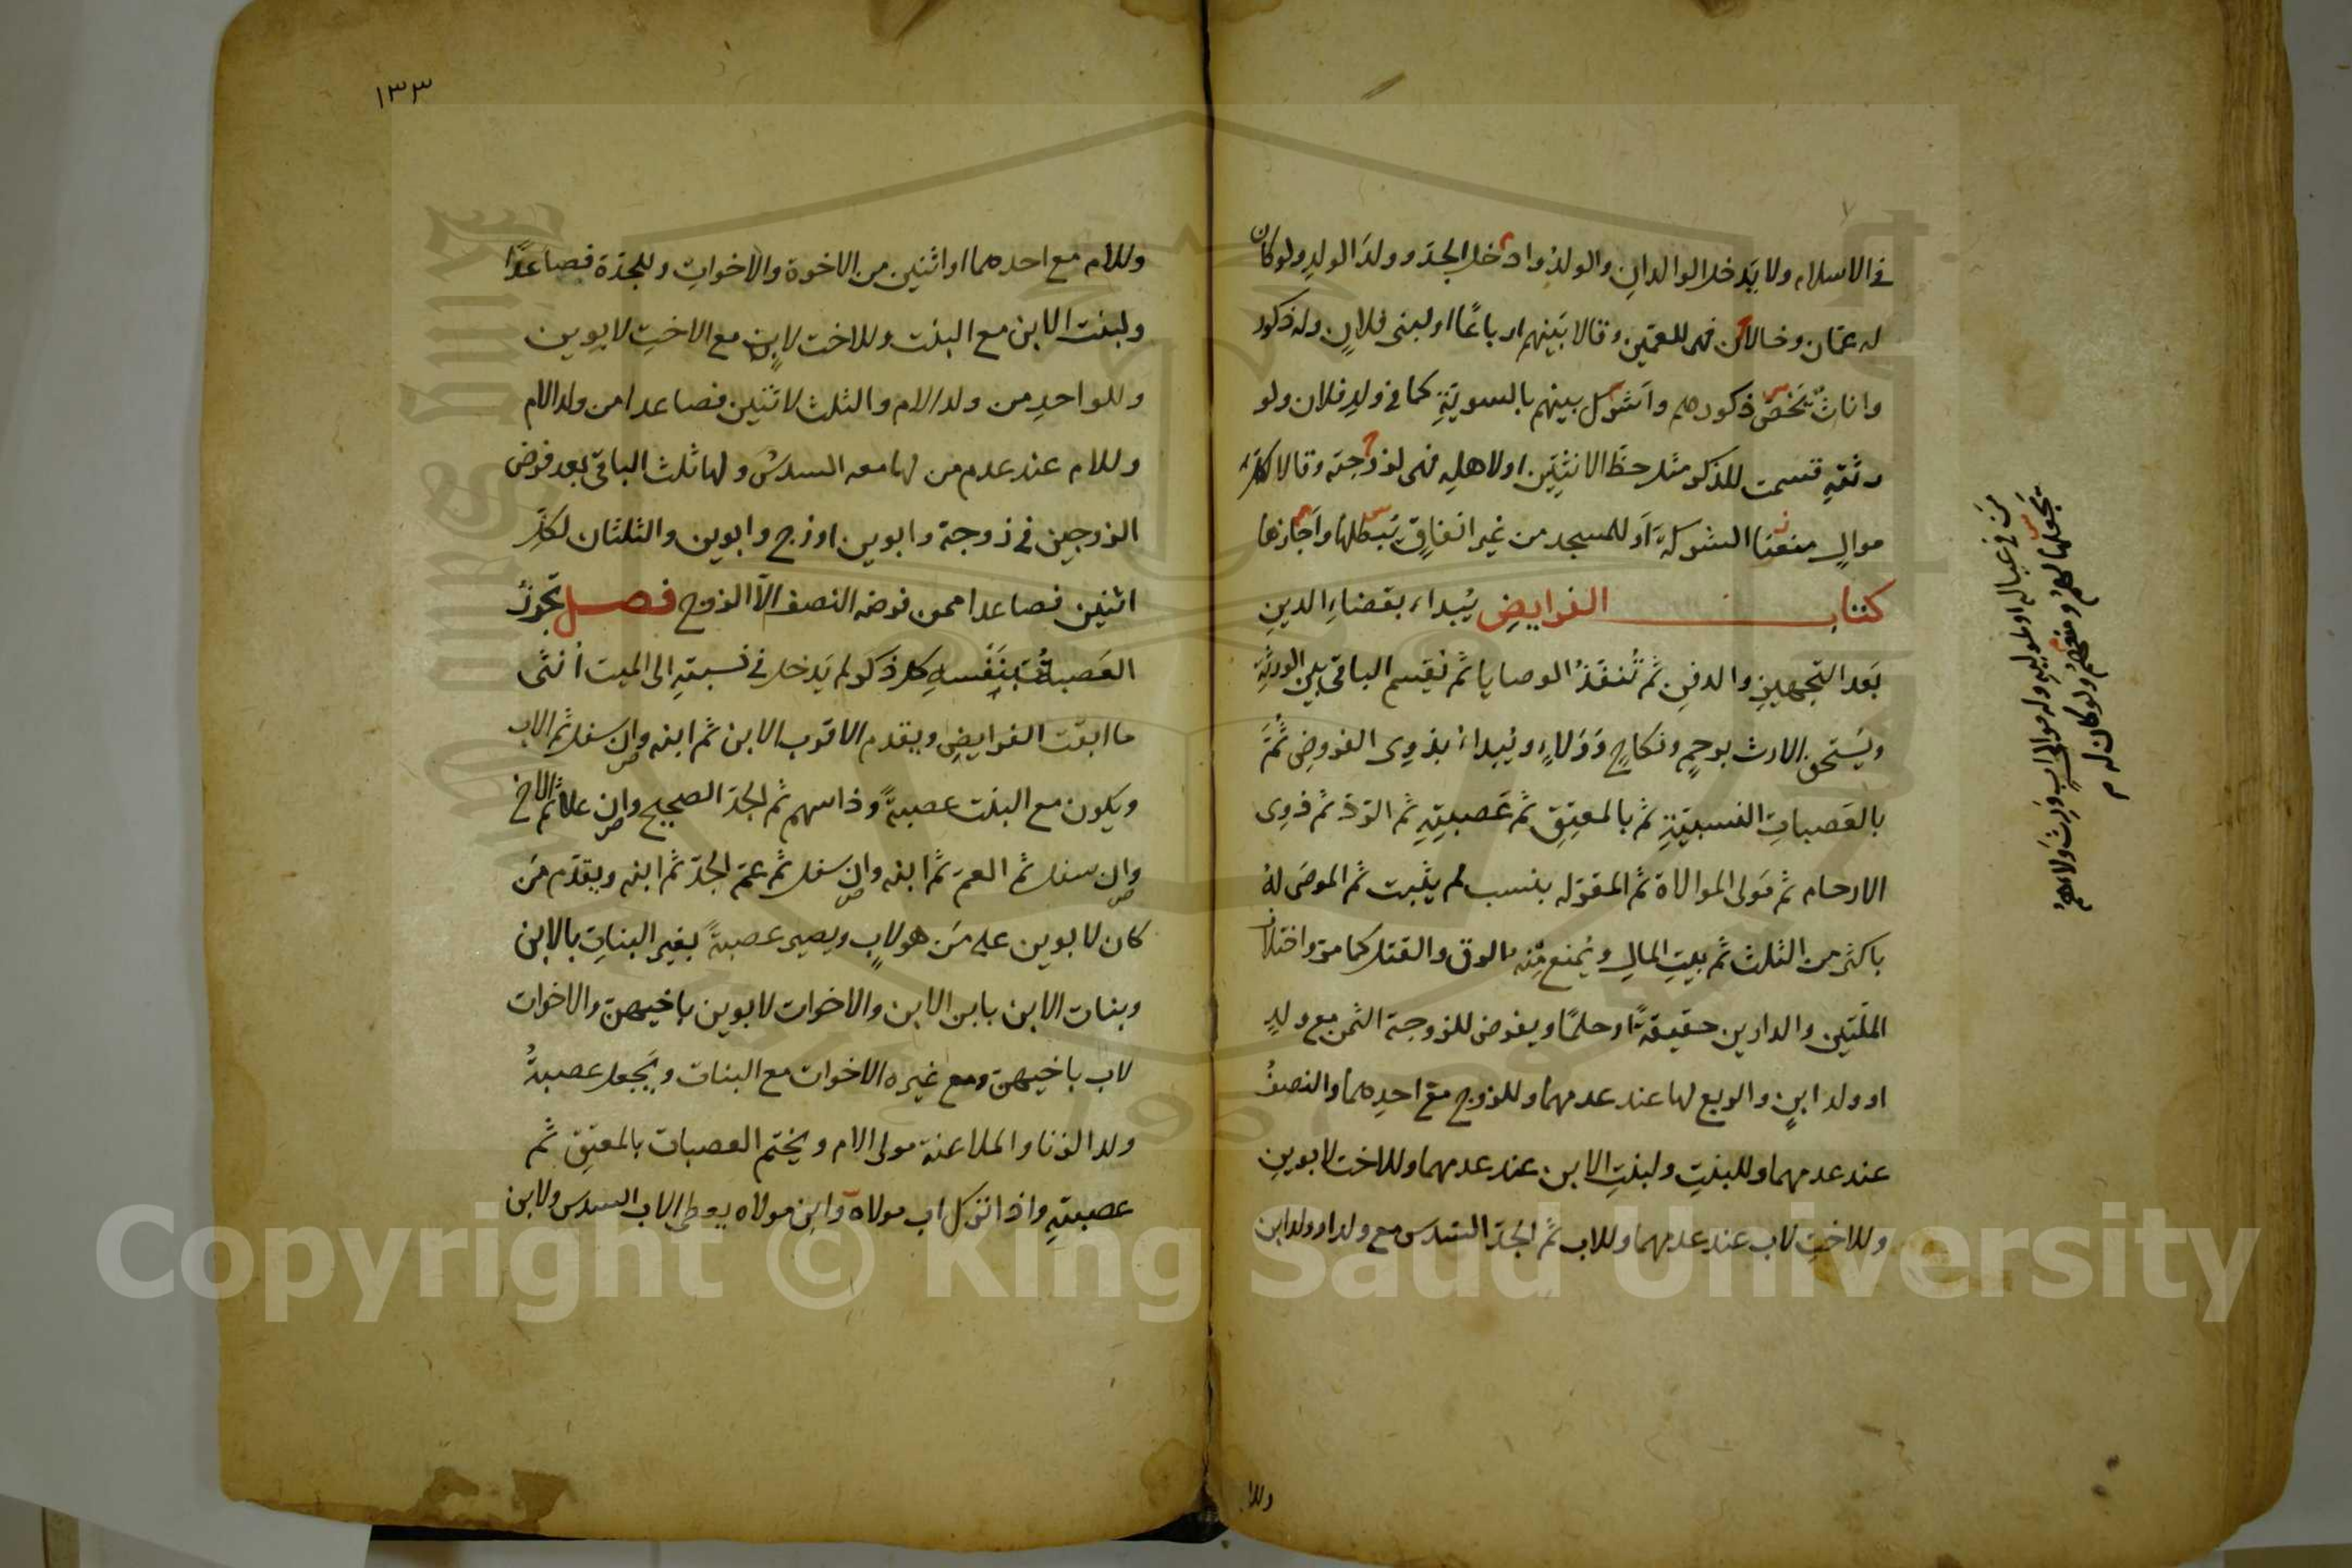 في الاسلام ولا يَدخل الوالدانِ والولدُ وادخل الجدّ وولدَ الولدِ ولو كان
له عمّان وخالان فهى للعمّين وقالا بَينهم ارباعًا او لبنى فلانٍ وله ذكور
واناثٌ يَخصّ ذكورهم واَشرك بينهم بالسويّةِ كما في ولدِ فلان ولو
ورثتهِ قسمت للذكر مثل حظّ الانثيَين او لاهلِه فهى لزوجته وقالا لكلّ
موالٍ منعنا الشركة اَو للمسجد من غير انفاقٍ تبطلها واَجازها
كتاب الفرايضِ يُبداء بقضاءِ الدينِ
بَعد التجهيزِ والدفنِ ثمّ تُنفَذُ الوصايا ثمّ نقيسم الباقى بين الورثةِ
ويَستحق الارث برحمٍ ونكاحٍ وَوَلاءٍ ويُبداءُ بذوِى الفروضِ ثُمّ
بالعَصباتِ النسبيّةِ ثمّ بالمعتِقِ ثمّ عَصبتِهِ ثمّ الرَدّ ثمّ ذوِى
الارحام ثمّ مَولى الموالاة ثمّ المقرّله بنسب لم يثبت ثمّ الموصَى لهُ
باكثر من الثلث ثمّ بيتِ المالِ ويُمنع مِنه بالرق والقتل كما مرّ واختلاف
الملّتين والدارين حقيقةً او حكمًا ويفرض للزوجة الثمن مع ولدٍ
او ولد ابنٍ والربع لها عند عدمهما وللزوج مع احدِهما والنصفُ
عند عدمهما وللبنتِ ولبنتِ الابن عند عدمهما وللاخت لابوينِ
وللاختِ لاب عند عدمهما وللاب ثمّ الجدّ السّدس مع ولد او ولد ابن
وللا
مَن في عياله او لمواليهِ وله موالى ابٍ وَرِث ولاءهم
يَجعلها لهمْ ومنعهُم ولو كان له م
١٣٣
وللام مع احدهما او اثنين من الاخوة والاخواتِ وللجدّة فصاعدًا
ولبنت الابن مع البنت وللاخت لابٍ مع الاختِ لابوين
وللواحدِ من ولد الام والثلث لاثنين فصاعدا من ولد الام
وللام عند عدم من لها معه السدسُ ولها ثلث الباقى بعد فرض
الزوجين في زوجة وابوين او زوج وابوين والثلثان لكلّ
اثنين فصاعدا ممن فرضه النصف الّا الزوج فصل تَحوزُ
العَصبةُ بنَفسهِ كل ذَكَر لم يَدخل في نسبتهِ الى الميت اُنثى
ما ابقت الفرايضِ ويقدم الاقرب الابن ثمّ ابنه وان سفل ثمّ الاب
ويكون مع البنت عصبةً وذا سهم ثمّ الجدّ الصحيح وان علا ثمّ الاخ
وان سفل ثمّ العمّ ثمّ ابنه وان سفل ثمّ عمّ الجدّ ثمّ ابنه ويقدّم مَن
كان لابوين على مَن هو لابٍ ويصير عصبةً بغير البناتِ بالابن
وبنات الابن بابن الابن والاخوات لابوين باخيهنّ والاخوات
لاب باخيهنّ ومع غيره الاخوات مع البنات ويَجعل عصبةُ
ولد الزنا والملاعنة مولى الام ويختم العصبات بالمعتِق ثمّ
عصبتهِ واذا ترك اب مولاه وابن مولاه يعطى الاب السدس ولابن
Copyright © King Saud University